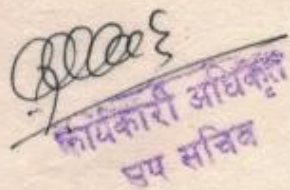 कार्यकारी अधिकृत
उप सचिव